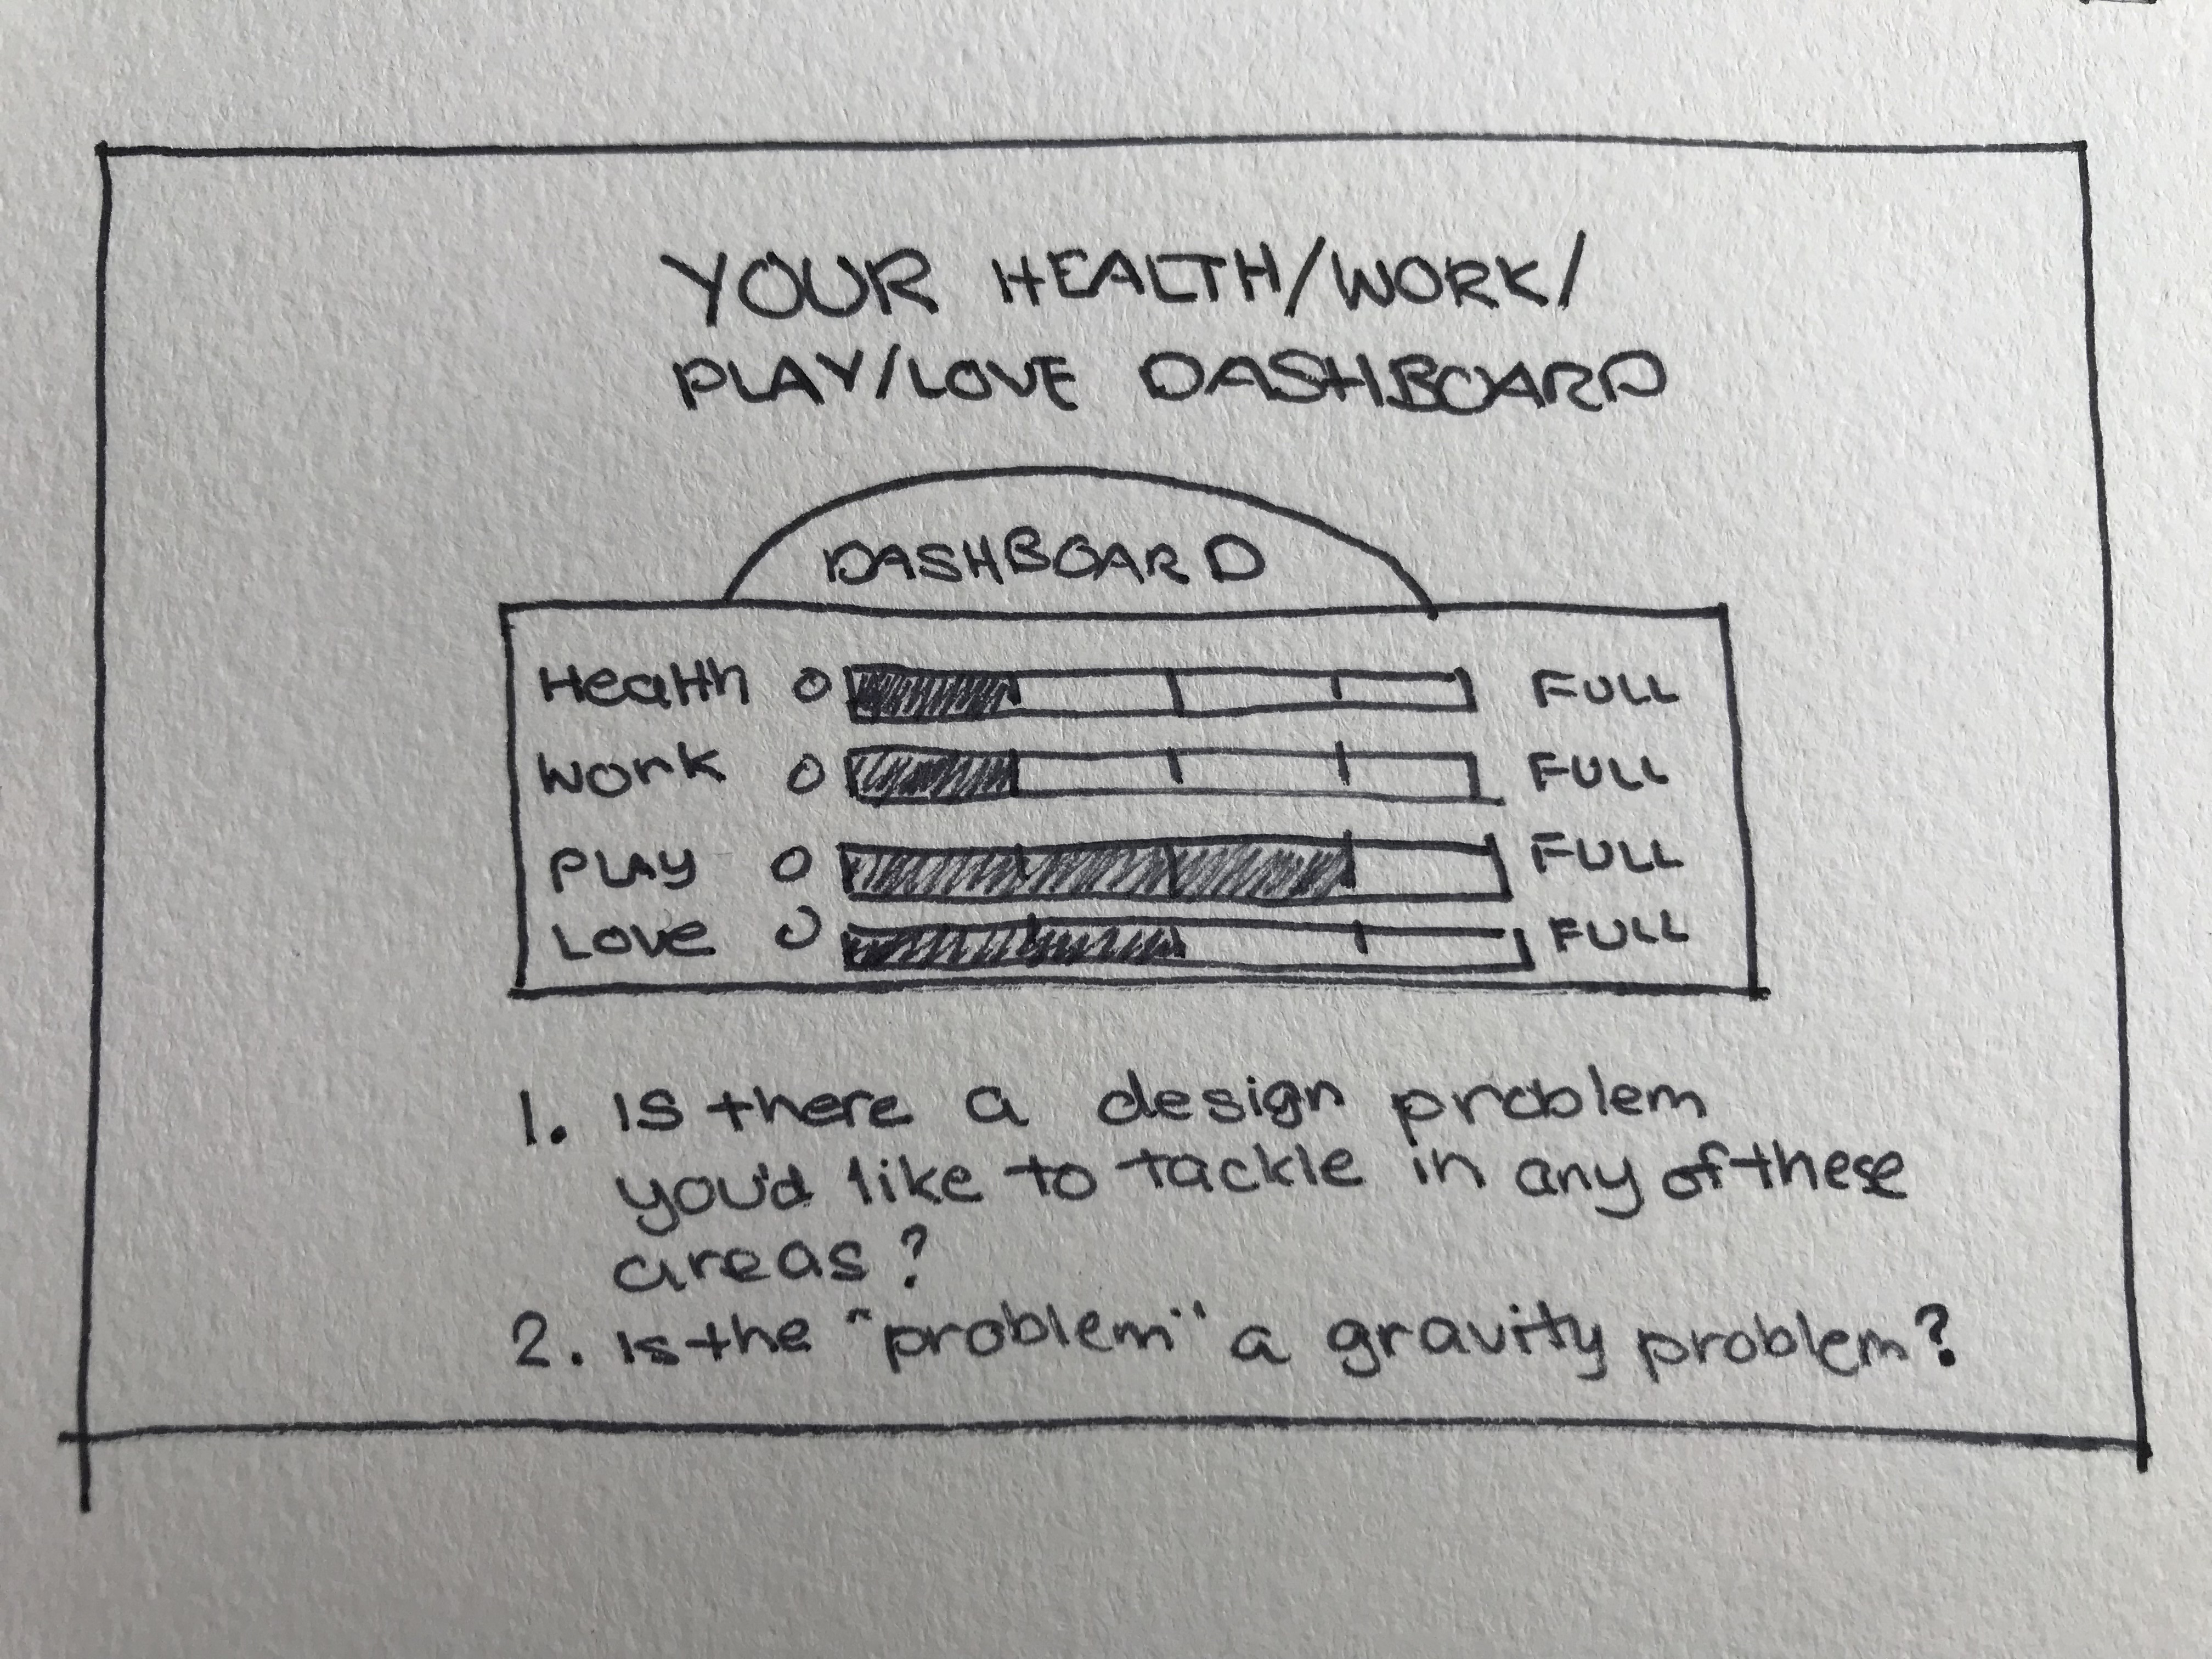 YOUR HEALTH/WORK/
PLAY/LOVE DASHBOARD
DASHBOARD
Health 0 FULL
Work 0 FULL
PLAY 0 FULL
LOVE 0 FULL
1. Is there a design problem
you'd like to tackle in any of these
areas?
2. Is the "problem" a gravity problem?